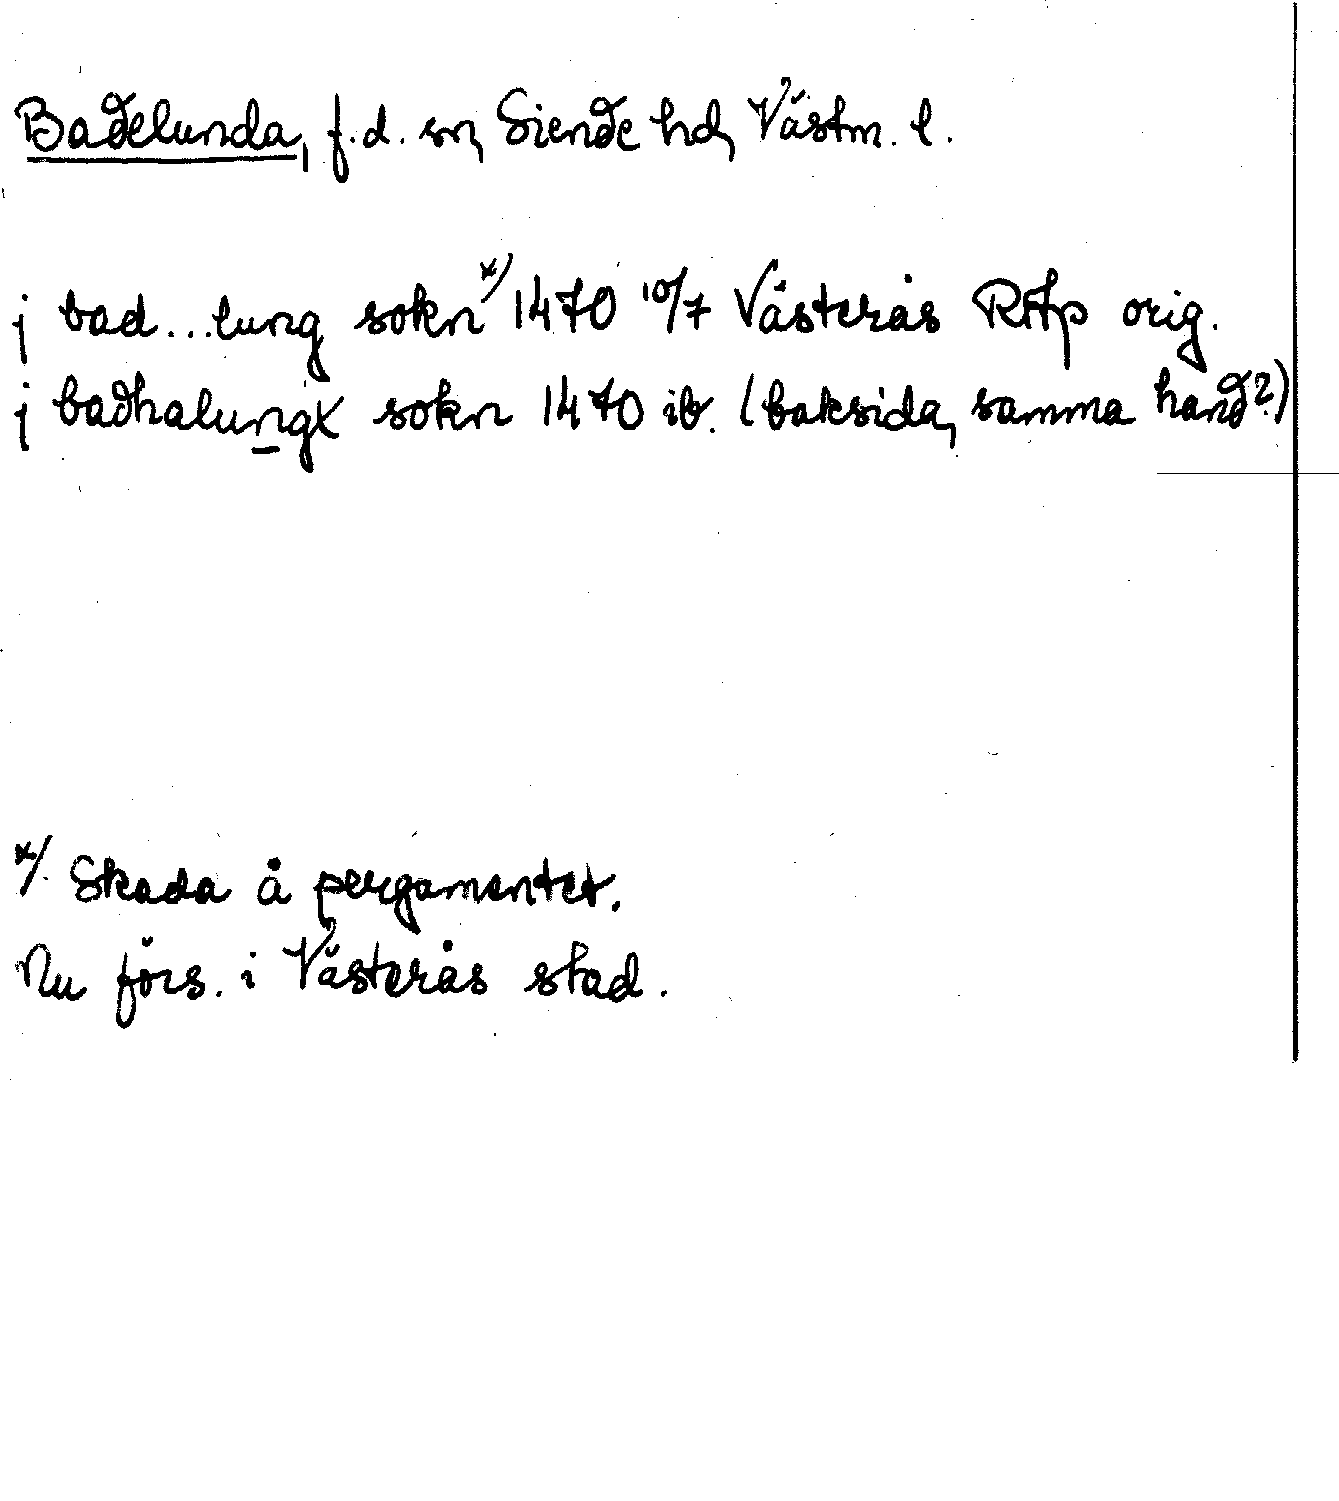 Badelunda, f.d. sn, Siende hd, Västm. l.
j bad...lung sokn x) 1470 10/7 Västerås RAp orig.
j badhalungx sokn 1470 ib. (baksida, samma hand?)
x/ Skada å pergamentet.
Nu förs. i Västerås stad.